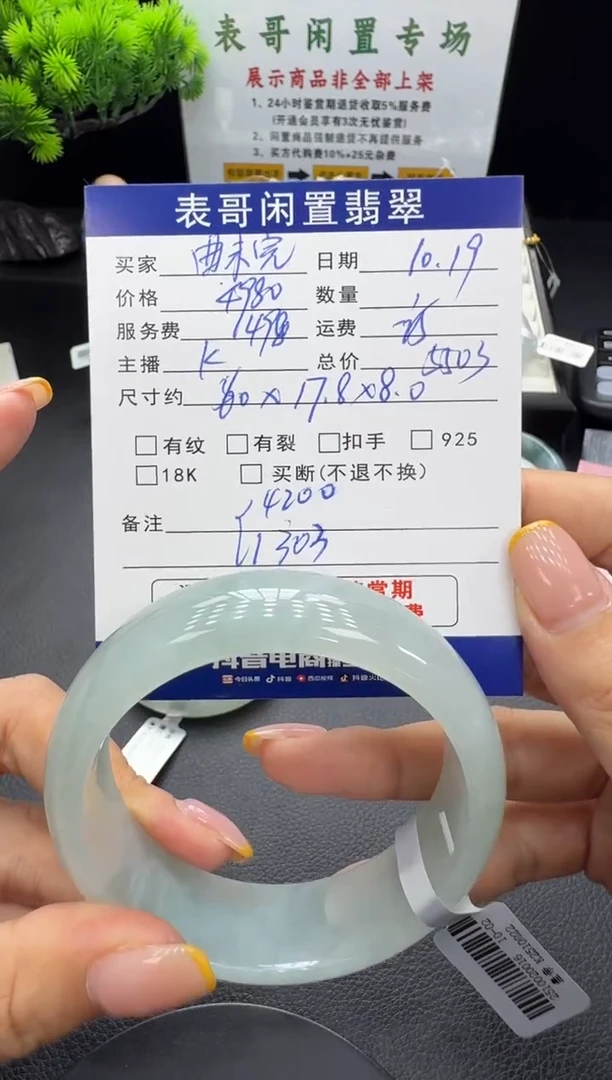 表哥闲置专场
展示商品非全部上架
1、24小时鉴赏期退货收取5%服务费
(开通会员享有3次无忧鉴赏)
2、闲置商品强制退货不再提供服务
3、买方代购费10%+25元杂费
表哥闲置翡翠
买家 曲未完 日期 10.19
价格 4980 数量 1
服务费 498 运费 25
主播 K 总价 5503
尺寸约 60×17.8×8.0
有纹 有裂 扣手 925
18K 买断(不退不换)
备注 4200
1303
赏期
费
抖音电商
今日头条 抖音 西瓜视频 抖音火山
2510020016 10-02
K2510022